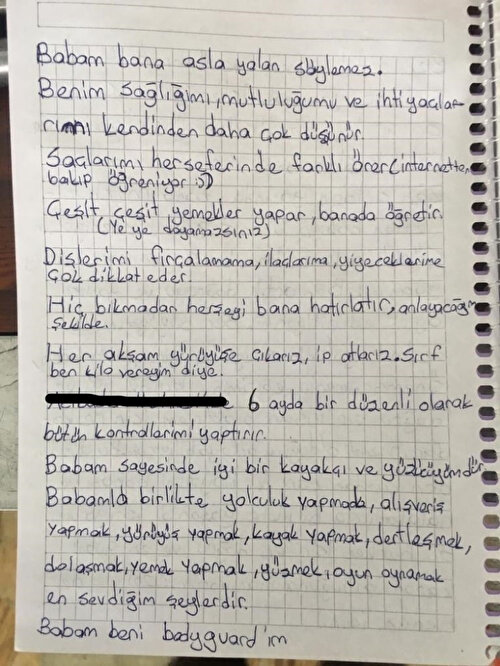 Babam bana asla yalan söylemez.
Benim sağlığımı, mutluluğumu ve ihtiyaçla-
rımı kendinden daha çok düşünür.
Saçlarımı herseferinde farklı örer(internetten
bakıp öğreniyor :))
Çeşit çeşit yemekler yapar, banada öğretir.
(Ye ye doyamazsınız)
Dişlerimi fırçalamama, ilaçlarıma, yiyeceklerime
çok dikkat eder.
Hiç bıkmadan herşeyi bana hatırlatır, anlayacağım
şekilde.
Her akşam yürüyüşe çıkarız, ip atlarız. Sırf
ben kilo vereyim diye.
6 ayda bir düzenli olarak
bütün kontrollerimi yaptırır.
Babam sayesinde iyi bir kayakçı ve yüzücüyümdür.
Babamla birlikte yolculuk yapmada, alışveriş
yapmak, yürüyüş yapmak, kayak yapmak, dertleşmek,
dolaşmak, yemek yapmak, yüzmek, oyun oynamak
en sevdiğim şeylerdir.
Babam beni bodyguard'ım